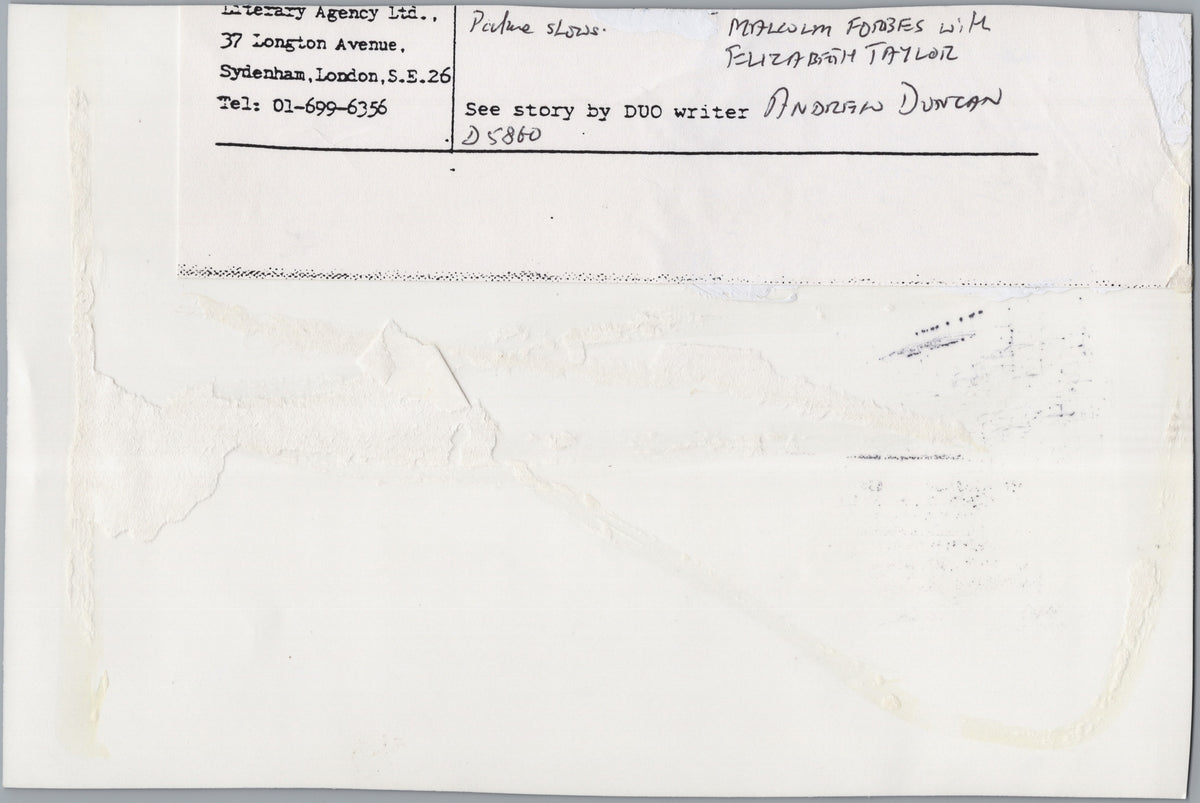 Literary Agency Ltd.,
37 Longton Avenue,
Sydenham,London,S.E.26
Tel: 01-699-6356
Picture shows.
MALCOLM FORBES with
ELIZABETH TAYLOR
See story by DUO writer ANDREW DUNCAN
D5860